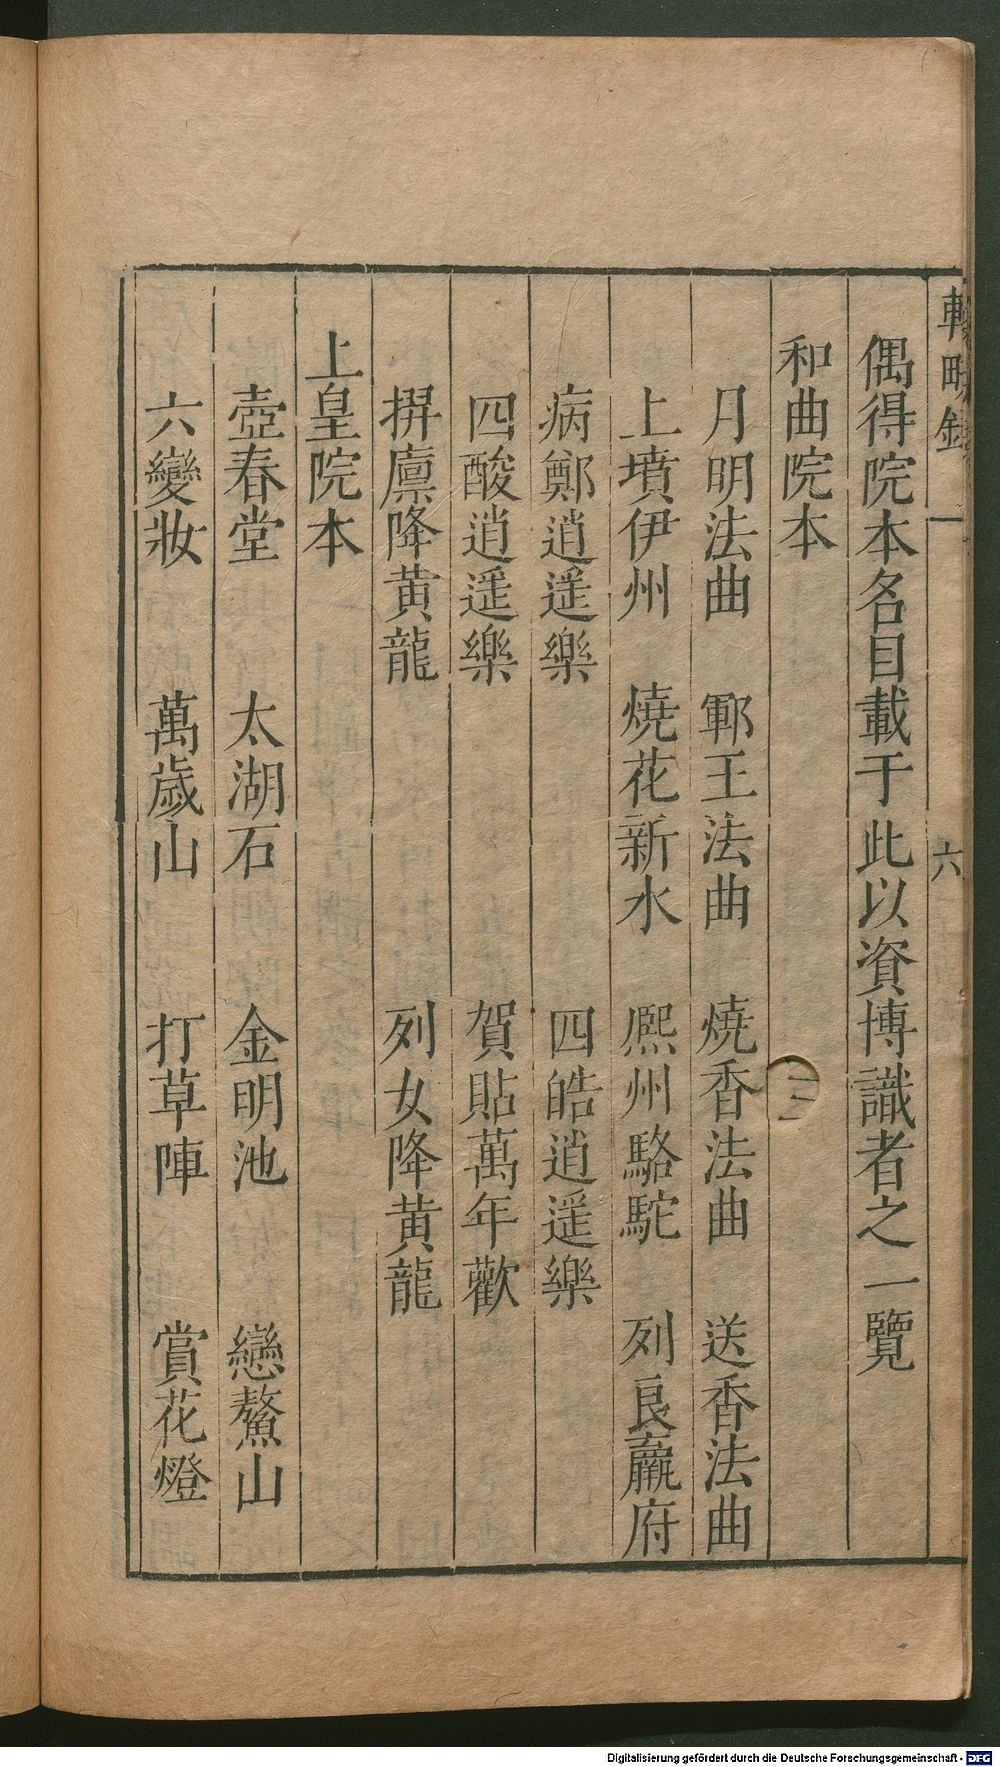 偶得院本名目載于此以資博識者之一覽
和曲院本
月明法曲　鄆王法曲　燒香法曲　送香法曲
上墳伊州　燒花新水　熙州駱駝　列良羸府
病鄭逍遥樂　四皓逍遥樂
四酸逍遥樂　賀貼萬年歡
㨍廩降黄龍　列女降黄龍
上皇院本
壺春堂　太湖石　金明池　戀鰲山
六變妝　萬歲山　打草陣　賞花燈
六
Digitalisierung gefördert durch die Deutsche Forschungsgemeinschaft - DFG